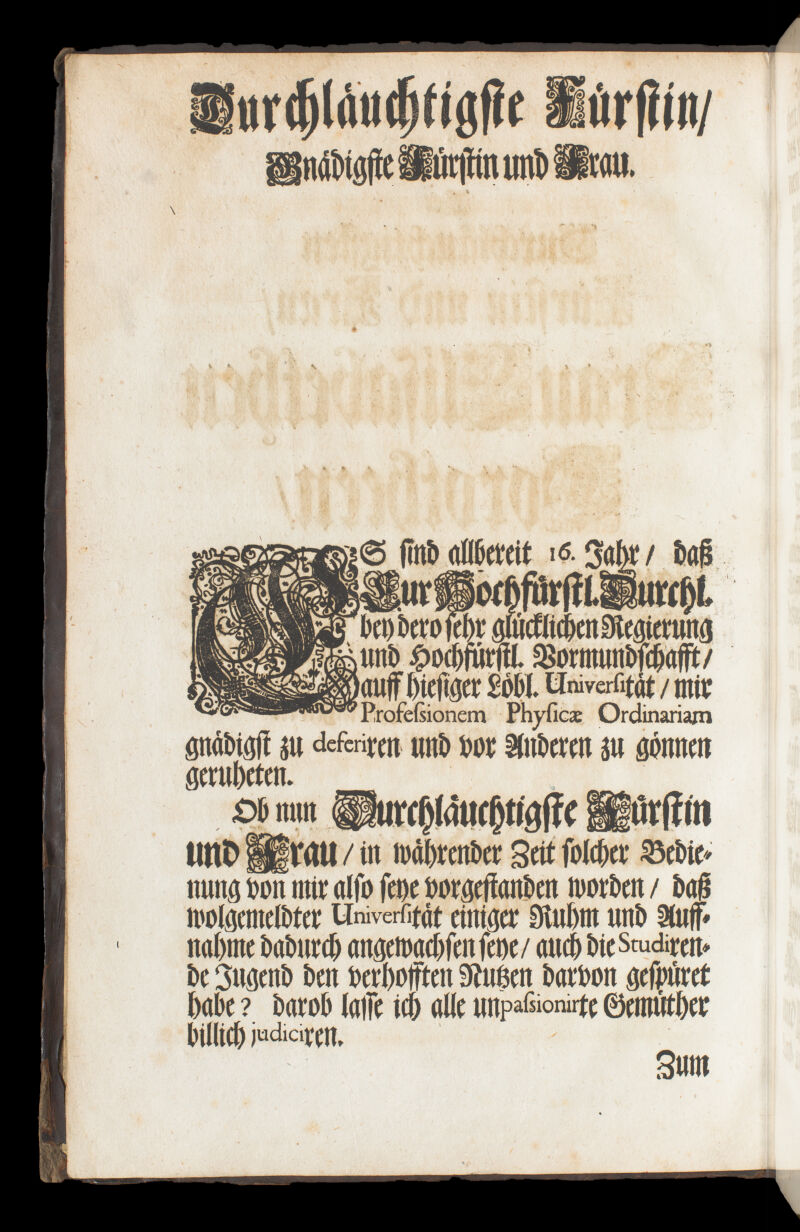 Durchläuchtigſte Fürſtin/
Gnädigſte Fürſtin und Frau.
ES ſind allbereit 16. Jahr / daß
Eur Hochfürſtl. Durchl.
bey dero ſehr glücklichen Regierung
und Hochfürſtl. Vormundſchafft /
auff hieſiger Löbl. Univerſität / mir
Profeſsionem Phyſicæ Ordinariam
gnädigſt zu deferiren und vor Anderen zu gönnen
geruheten.
Ob nun Durchläuchtigſte Fürſtin
und Frau / in währender Zeit ſolcher Bedie-
nung von mir alſo ſeye vorgeſtanden worden / daß
wolgemeldter Univerſität einiger Ruhm und Auff-
nahme dadurch angewachſen ſeye / auch die Studiren-
de Jugend den verhofften Nutzen darvon geſpüret
habe ? darob laſſe ich alle unpaſsionirte Gemüther
billich judiciren.
Zum